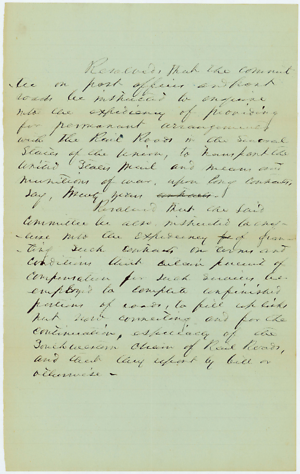 Resolved, That the commit
tee on post offices and post
roads be instructed to enquire
into the expediency of providing
for permanent arrangements
with the Rail Roads in the several
States of the Union, to transport the
United States Mail and means and
munitions of war, upon long contracts,
say, years
Resolved that the said
Committee be also instructed to enq
uire into the Expediency of gran
ting such contracts on terms and
conditions that
compensation for such services be
employed to complete unfinished
portions of roads, to fill up links
not now connecting and for the
continuation, especially of the
Southwestern chain of Rail Roads,
and that they report by bill or
otherwise –